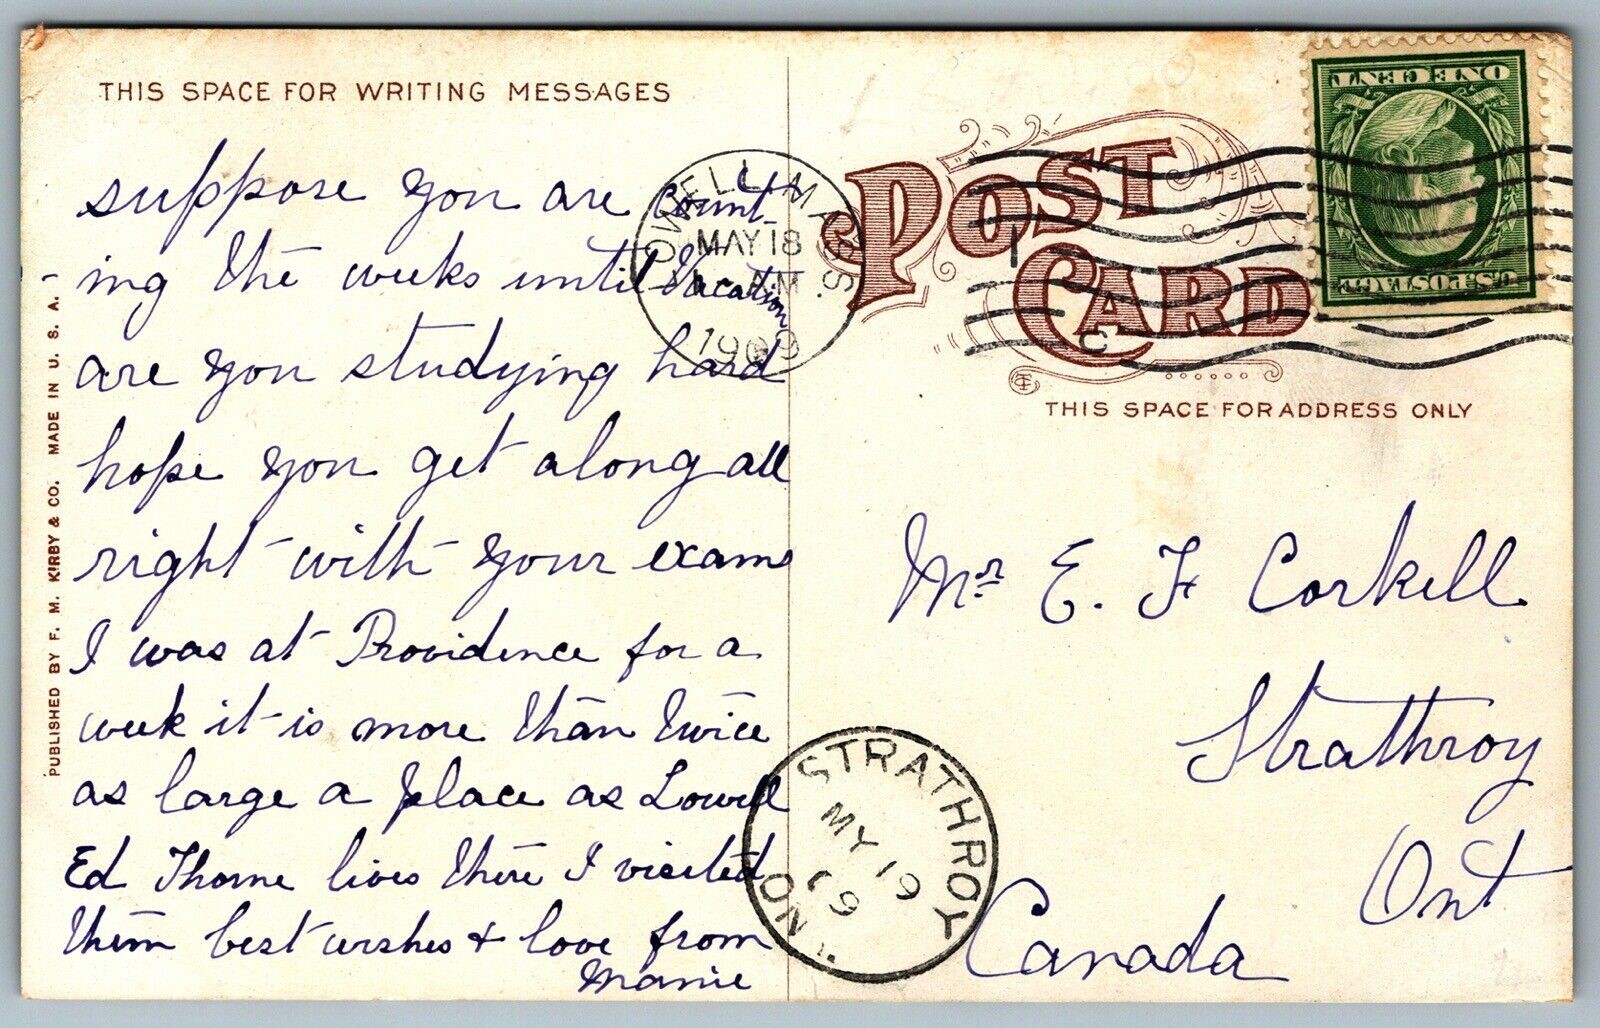 THIS SPACE FOR WRITING MESSAGES
suppose you are count-
ing the weeks until Vacation
are you studying hard
hope you get along all
right with your exams
I was at Providence for a
week it is more than twice
as large a place as Lowell
Ed Thorne lives there I visited
them best wishes + love from
Mamie
PUBLISHED BY F. M. KIRBY & CO. MADE IN U. S. A.
LOWELL, MASS.
MAY 18
1909
POST CARD
THIS SPACE FOR ADDRESS ONLY
U.S. POSTAGE
ONE CENT
Mr E. F Corkill
Strathroy
Ont
Canada
STRATHROY
MY 19
09
ONT.